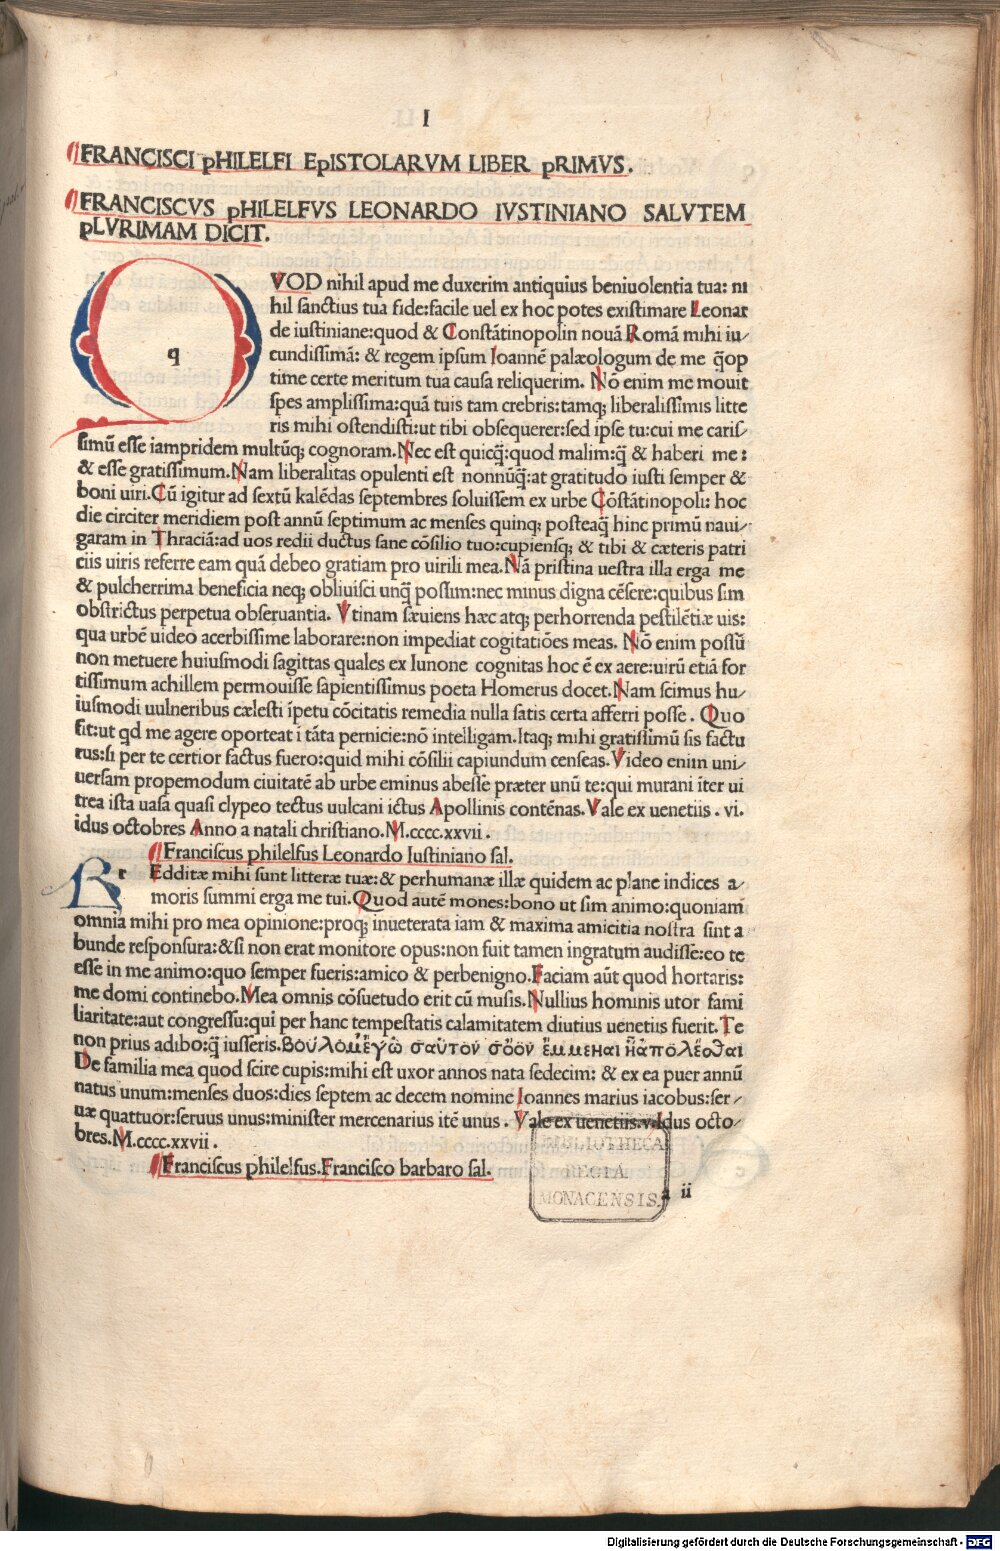 I
FRANCISCI pHILELFI EpISTOLARVM LIBER pRIMVS.
FRANCISCVS pHILELFVS LEONARDO IVSTINIANO SALVTEM
pLVRIMAM DICIT.
q
VOD nihil apud me duxerim antiquius beniuolentia tua: ni
hil ſanctius tua fide:facile uel ex hoc potes exiſtimare Leonar
de iuſtiniane:quod & Conſtãtinopolin nouã Romã mihi iu/
cundiſſimã: & regem ipſum Ioannẽ palæologum de me q̃op
time certe meritum tua cauſa reliquerim. Nõ enim me mouit
ſpes ampliſſima:quã tuis tam crebris:tamq; liberaliſſimis litte
ris mihi oſtendiſti:ut tibi obſequerer:ſed ipſe tu:cui me cariſ/
ſimũ eſſe iampridem multũq; cognoram. Nec eſt quicq̃:quod malim:q̃ & haberi me:
& eſſe gratiſſimum. Nam liberalitas opulenti eſt nonnũq̃:at gratitudo iuſti ſemper &
boni uiri. Cũ igitur ad ſextũ kalẽdas ſeptembres ſoluiſſem ex urbe Cõſtãtinopoli: hoc
die circiter meridiem poſt annũ ſeptimum ac menſes quinq; poſteaq̃ hinc primũ naui/
garam in Thraciã:ad uos redii ductus ſane cõſilio tuo:cupienſq; & tibi & cæteris patri
ciis uiris referre eam quã debeo gratiam pro uirili mea. Nã priſtina ueſtra illa erga me
& pulcherrima beneficia neq; obliuiſci unq̃ poſſum:nec minus digna cẽſere:quibus ſim
obſtrictus perpetua obſeruantia. Vtinam ſæuiens hæc atq; perhorrenda peſtilẽtiæ uis:
qua urbẽ uideo acerbiſſime laborare:non impediat cogitatiões meas. Nõ enim poſſũ
non metuere huiuſmodi ſagittas quales ex Iunone cognitas hoc ẽ ex aere:uirũ etiã for
tiſſimum achillem permouiſſe ſapientiſſimus poeta Homerus docet. Nam ſcimus hu/
iuſmodi uulneribus cæleſti ĩpetu cõcitatis remedia nulla ſatis certa afferri poſſe. Quo
fit:ut qd me agere oporteat i tãta pernicie:nõ intelligam. Itaq; mihi gratiſſimũ ſis factu
rus:ſi per te certior factus fuero:quid mihi cõſilii capiundum cenſeas. Video enim uni/
uerſam propemodum ciuitatẽ ab urbe eminus abeſſe præter unũ te:qui murani ĩter ui
trea iſta uaſa quaſi clypeo tectus uulcani ictus Apollinis contẽnas. Vale ex uenetiis. vi.
idus octobres Anno a natali chriſtiano. M.cccc.xxvii.
Franciſcus philelfus Leonardo Iuſtiniano ſal.
r Edditæ mihi ſunt litteræ tuæ:& perhumanæ illæ quidem ac plane indices a/
moris ſummi erga me tui. Quod autẽ mones:bono ut ſim animo:quoniam
omnia mihi pro mea opinione:proq; inueterata iam & maxima amicitia noſtra ſint a
bunde reſponſura:&ſi non erat monitore opus:non fuit tamen ingratum audiſſe:eo te
eſſe in me animo:quo ſemper fueris:amico & perbenigno. Faciam aũt quod hortaris:
me domi continebo. Mea omnis cõſuetudo erit cũ muſis. Nullius hominis utor fami
liaritate:aut congreſſu:qui per hanc tempeſtatis calamitatem diutius uenetiis fuerit. Te
non prius adibo:q̃ iuſſeris. βούλομ᾽ἐγὼ σαὑτὸν σόον ἔμμεναι ἢἀπολέσθαι
De familia mea quod ſcire cupis:mihi eſt uxor annos nata ſedecim: & ex ea puer annũ
natus unum:menſes duos:dies ſeptem ac decem nomine Ioannes marius iacobus:ſer/
uæ quattuor:ſeruus unus:miniſter mercenarius itẽ unus. Vale ex uenetiis.v.Idus octo/
bres. M.cccc.xxvii.
Franciſcus philelfus.Franciſco barbaro ſal.
a ii
BIBLIOTHECA
REGIA
MONACENSIS.
Digitalisierung gefördert durch die Deutsche Forschungsgemeinschaft - DFG